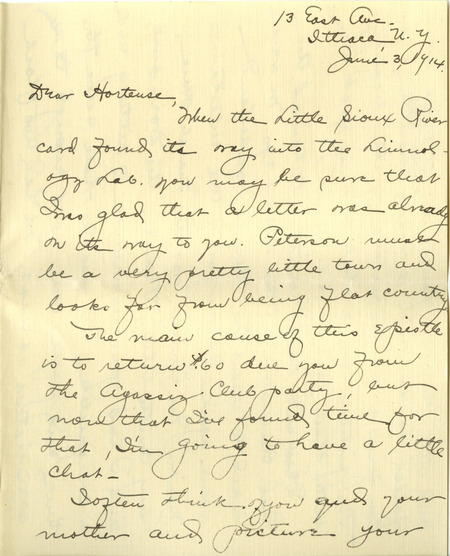 13 East Ave.
Ithaca N.Y.
June 3, 1914.
Dear Hortense,
When the Little Sioux River
card found its way into the Limnol-
ogy Lab. you may be sure that
I was glad that a letter was already
on its way to you. Peterson must
be a very pretty little town and
looks far from being flat country
The main cause of this epistle
is to return $.60 due you from
the Agassiz Club party, but
now that I've found time for
that, I'm going to have a little
chat-
I often think of you and your
mother and picture your